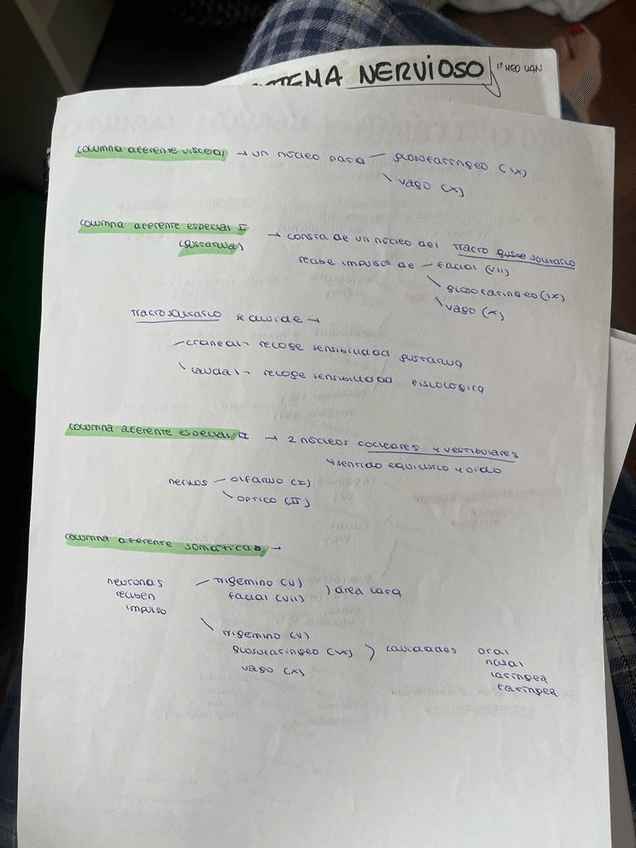 STEMA NERVIOSO
1º MED UAN
columna aferente visceral → un núcleo para - glosofaríngeo (IX)
\ vago (X)
columna aferente especial I → consta de un núcleo del tracto solitario
(gustativa)
recibe impulsos de - facial (VII)
\ glosofaríngeo (IX)
\ vago (X)
Tracto solitario se divide →
- craneal → recoge sensibilidad gustativa
\ caudal → recoge sensibilidad fisiológica
columna aferente especial II → 2 núcleos cocleares y vestibulares
→ sentido equilibrio y oído
nervios - olfativo (I)
\ óptico (II)
columna aferente somática →
neuronas - trigémino (V)
reciben facial (VII) ) área cara
impulso
\ trigémino (V)
glosofaríngeo (IX) ) cavidades oral
vago (X) nasal
laríngea
faríngea